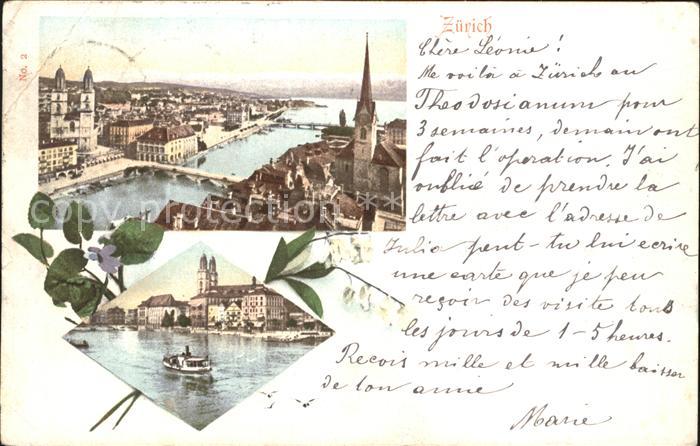 No. 2
Zürich
Chère Léonie!
Me voilà à Zürich au
Theodosianum pour
3 semaines, demain ont
fait l'operation. J'ai
oublié de prendre la
lettre avec l'adresse de
Julia peut-tu lui ecrire
une carte que je peu
reçoir des visite tous
les jours de 1-5 heures.
Recois mille et mille baiser
de ton amie
Marie
copyright protection **